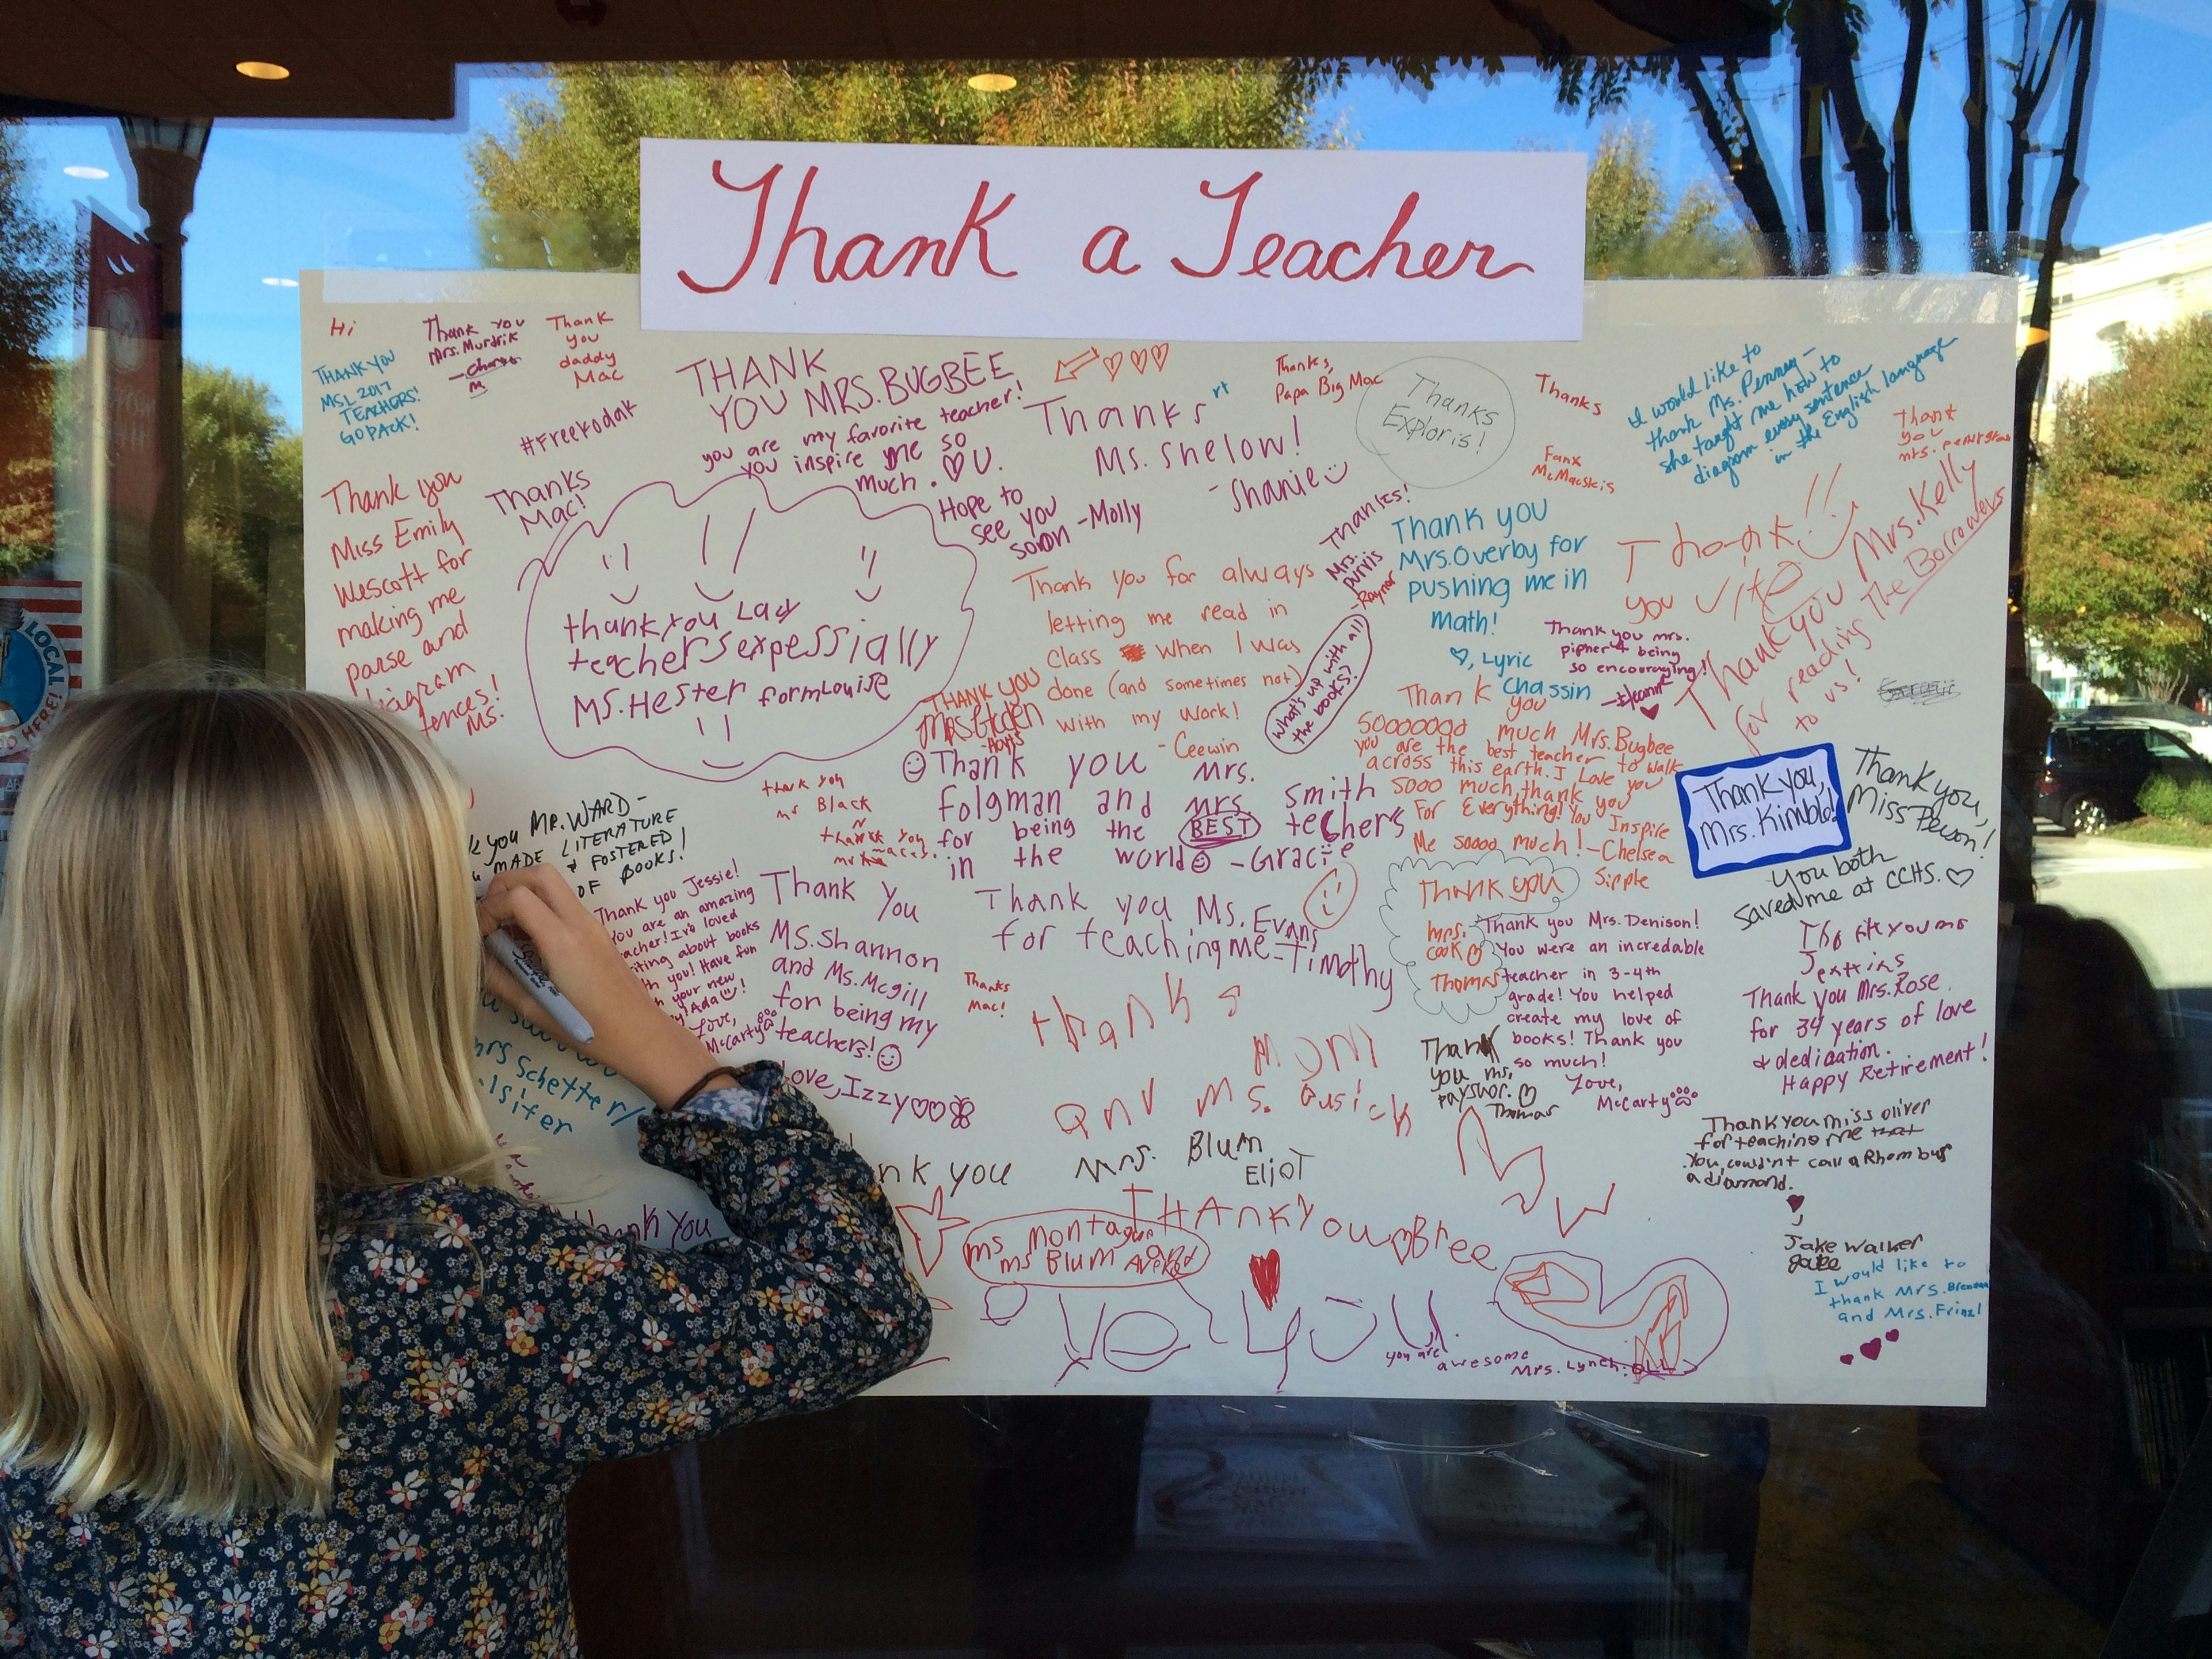 Thank a Teacher
Hi
THANK YOU
MSL 2017
TEACHERS!
GO PACK!
Thank you
Mrs. Murdrik
Thank
you
daddy
Mac
#FreeKodak
Thanks
Mac!
THANK
YOU MRS. BUGBEE
you are my favorite teacher!
you inspire me so
much. ♡ U.
Hope to
see you
soon -Molly
Thanks
Ms. Shelow!
-Shanie
Thanks,
Papa Big Mac
Thanks
Exploris!
Thanks
Fanx
McMacskis
I would like to
thank Ms. Penney-
she taught me how to
diagram every sentence
in the English language
Thank
you
mrs.
Thank you
Miss Emily
Wescott for
making me
parse and
diagram
tences!
MS.
thankyou Lady
teachers expessially
MS. Hester formLouise
Thank you for always
letting me read in
class when I was
done (and sometimes not)
with my work!
-Ceewin
Thanks!
Mrs.
Purvis
-Raynor
What's up with all
the books?
Thank you
Mrs. Overby for
pushing me in
math!
♡, Lyric
Chassin
Thank you mrs.
pipher 4 being
so encouraging!
Thank
you
Thank you Mrs. Kelly
for reading The Borrowers
to us!
THANK YOU
Thank you
Sooooood much Mrs. Bugbee
you are the best teacher to walk
across this earth. I Love you
sooo much, thank you
For Everything! You Inspire
Me soooo much! -Chelsea
Sipple
Thank you Mrs.
Folgman and Mrs. Smith
for being the BEST techers
in the world -Gracie
thank you
mr Black
thank you
k you MR. WARD-
MADE LITERATURE
& FOSTERED
OF BOOKS!
Thank you Jessie!
You are an amazing
teacher! I've loved
iting about books
th you! Have fun
h your new
Ada!
Love,
McCarty
Thank You
MS. Shannon
and Ms. Mcgill
for being my
teachers!
Love, Izzy ♡♡
Thank you Ms. Evans
for teaching me -Timothy
Thanks
Mac!
thanks
Mom
and Ms. Cusick
Thank you
mrs.
cook
Thomas
Thank you Mrs. Denison!
You were an incredable
teacher in 3-4th
grade! You helped
create my love of
books! Thank you
so much!
Love,
McCarty
Thank
you ms.
Thomas
Thank you,
Mrs. Kimble!
Thank you,
Miss Pewon!
You both
saved me at CCHS. ♡
Thank you Mrs. Rose
for 34 years of love
& dedication.
Happy Retirement!
Thank you miss oliver
for teaching me that
You couldn't call a Rhombus
a diamond.
Jake Walker
Jake
I would like to
thank Mrs. Brennan
and Mrs. Frinzl
mrs Schetter/
lsifer
nk you Mrs. Blum
Eliot
thank you
THANK You ♡ Bree
ms Montague
ms Blum
you
you are awesome
Mrs. Lynch
LOCAL
HERE!